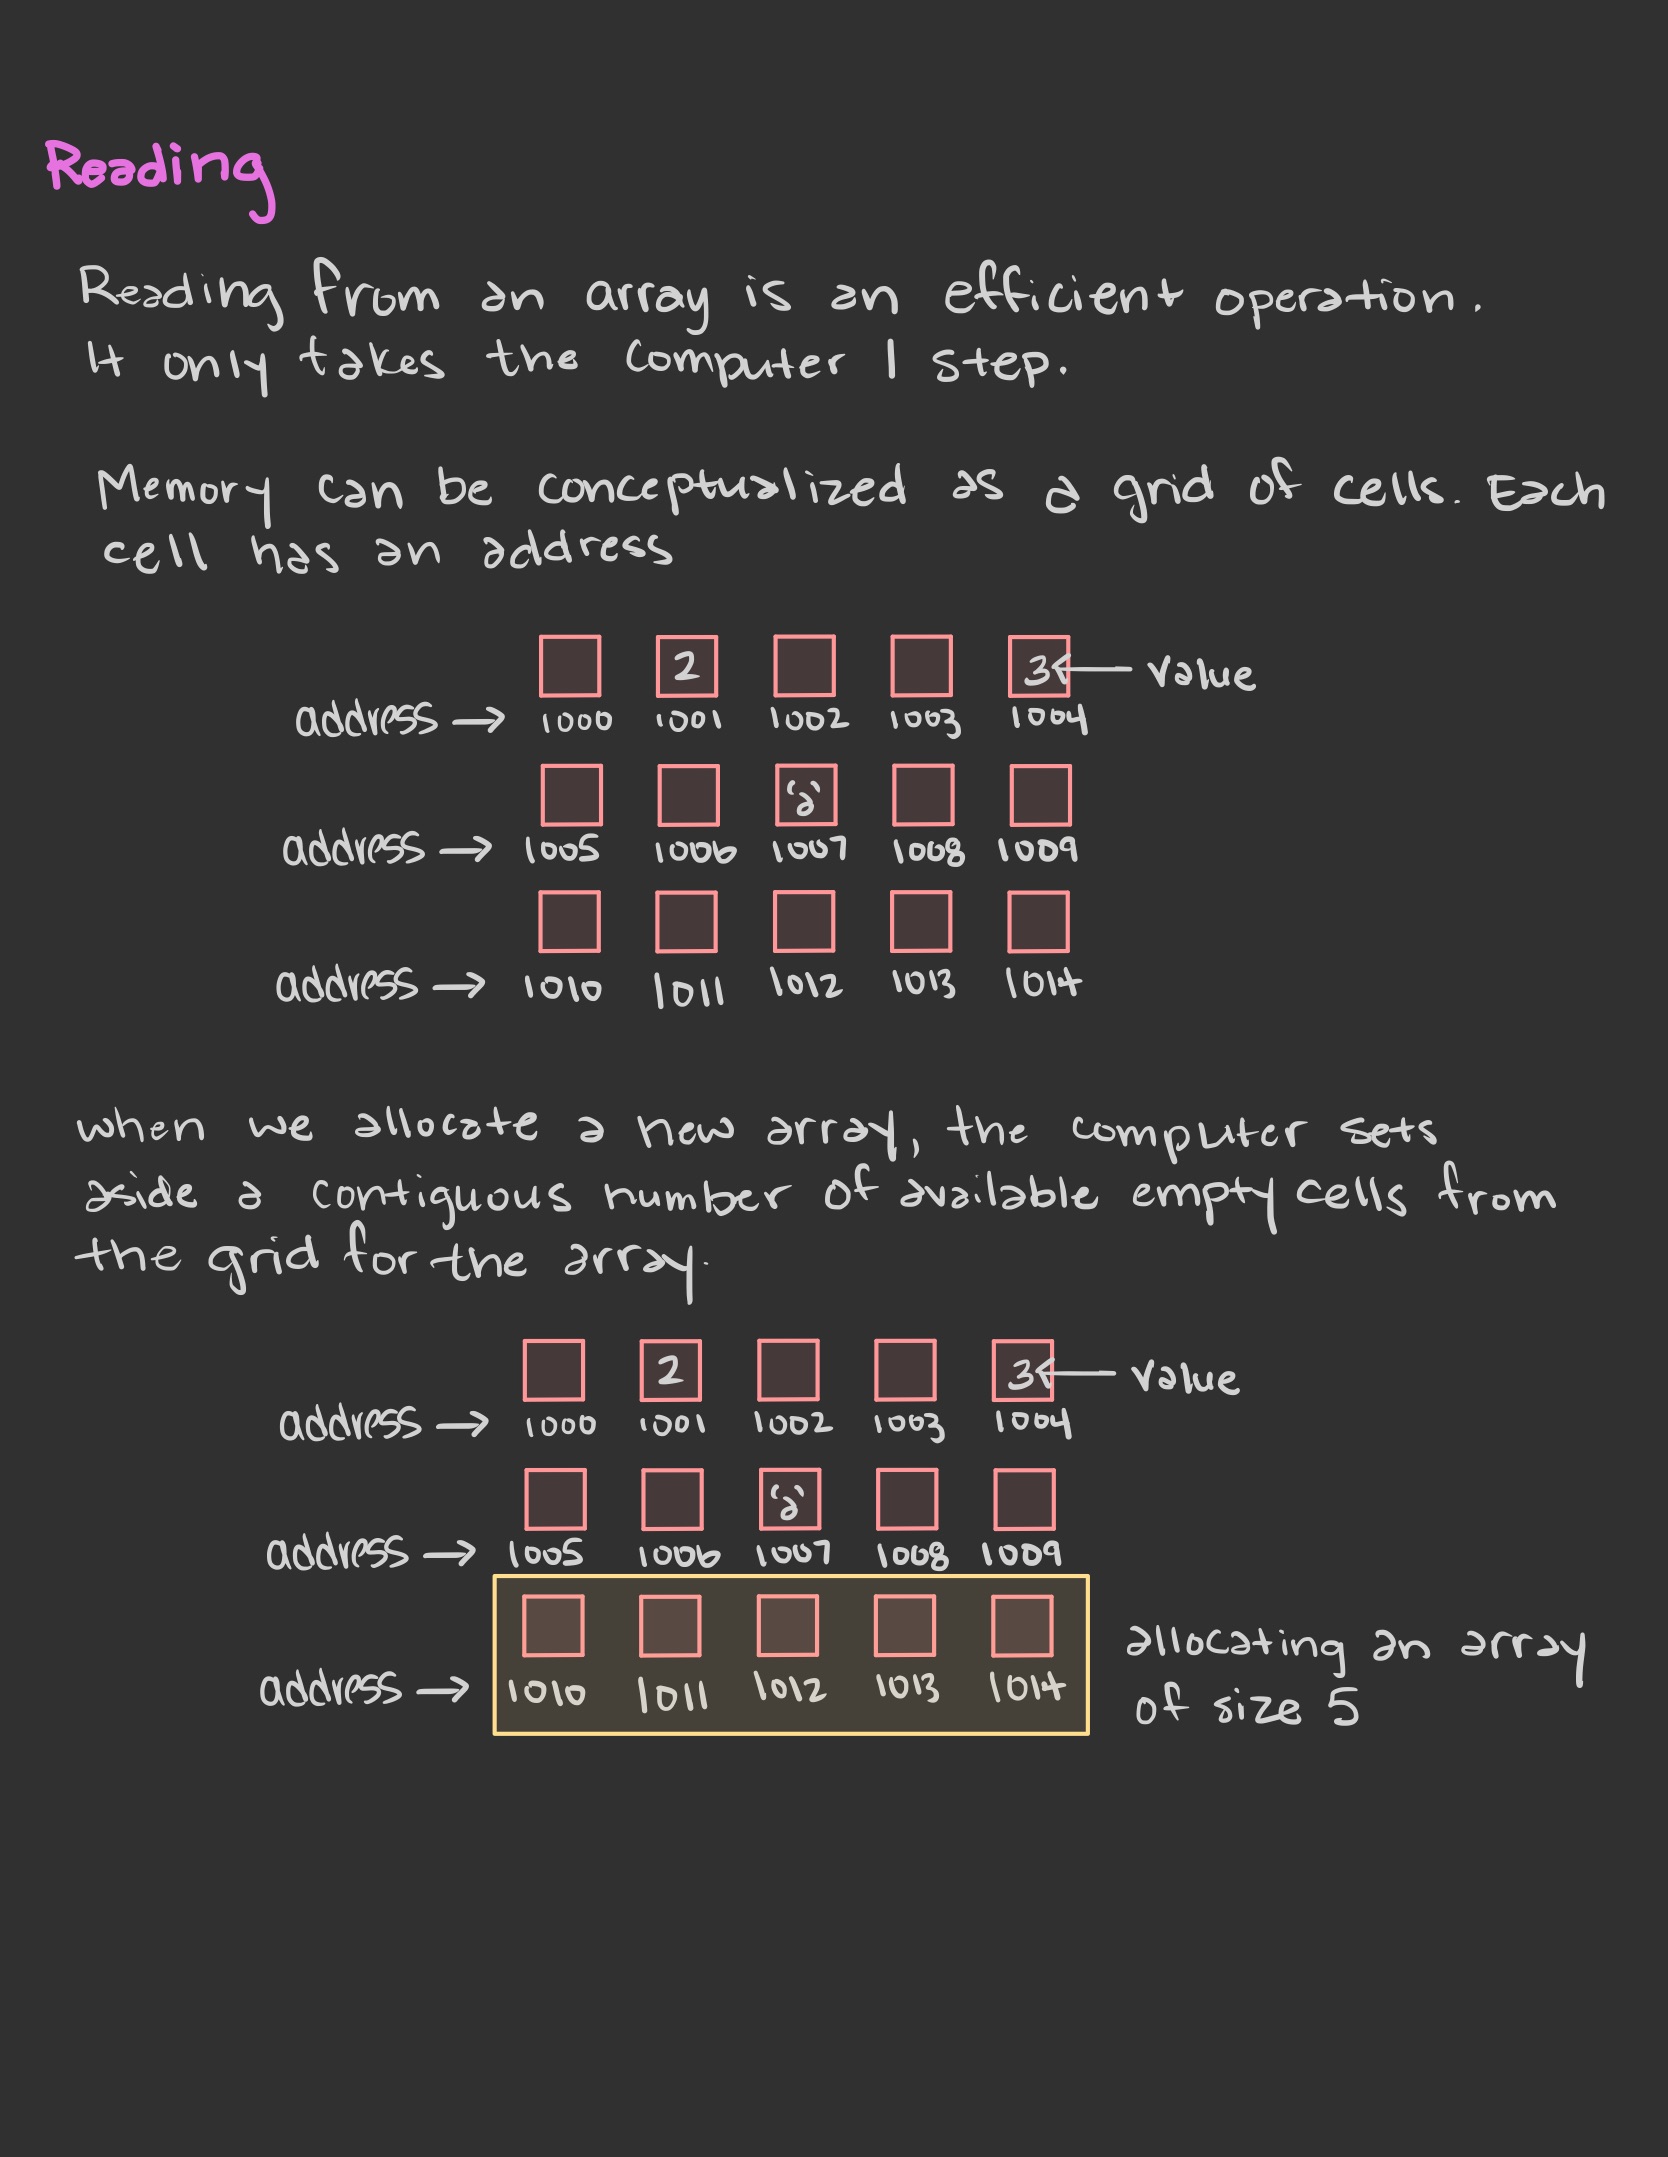 Reading
Reading from an array is an efficient operation.
It only takes the computer 1 step.
Memory can be conceptualized as a grid of cells. Each
cell has an address
2 3 ← value
address → 1000 1001 1002 1003 1004
'a'
address → 1005 1006 1007 1008 1009
address → 1010 1011 1012 1013 1014
when we allocate a new array, the computer sets
aside a contiguous number of available empty cells from
the grid for the array.
2 3 ← value
address → 1000 1001 1002 1003 1004
'a'
address → 1005 1006 1007 1008 1009
address → 1010 1011 1012 1013 1014
allocating an array
of size 5